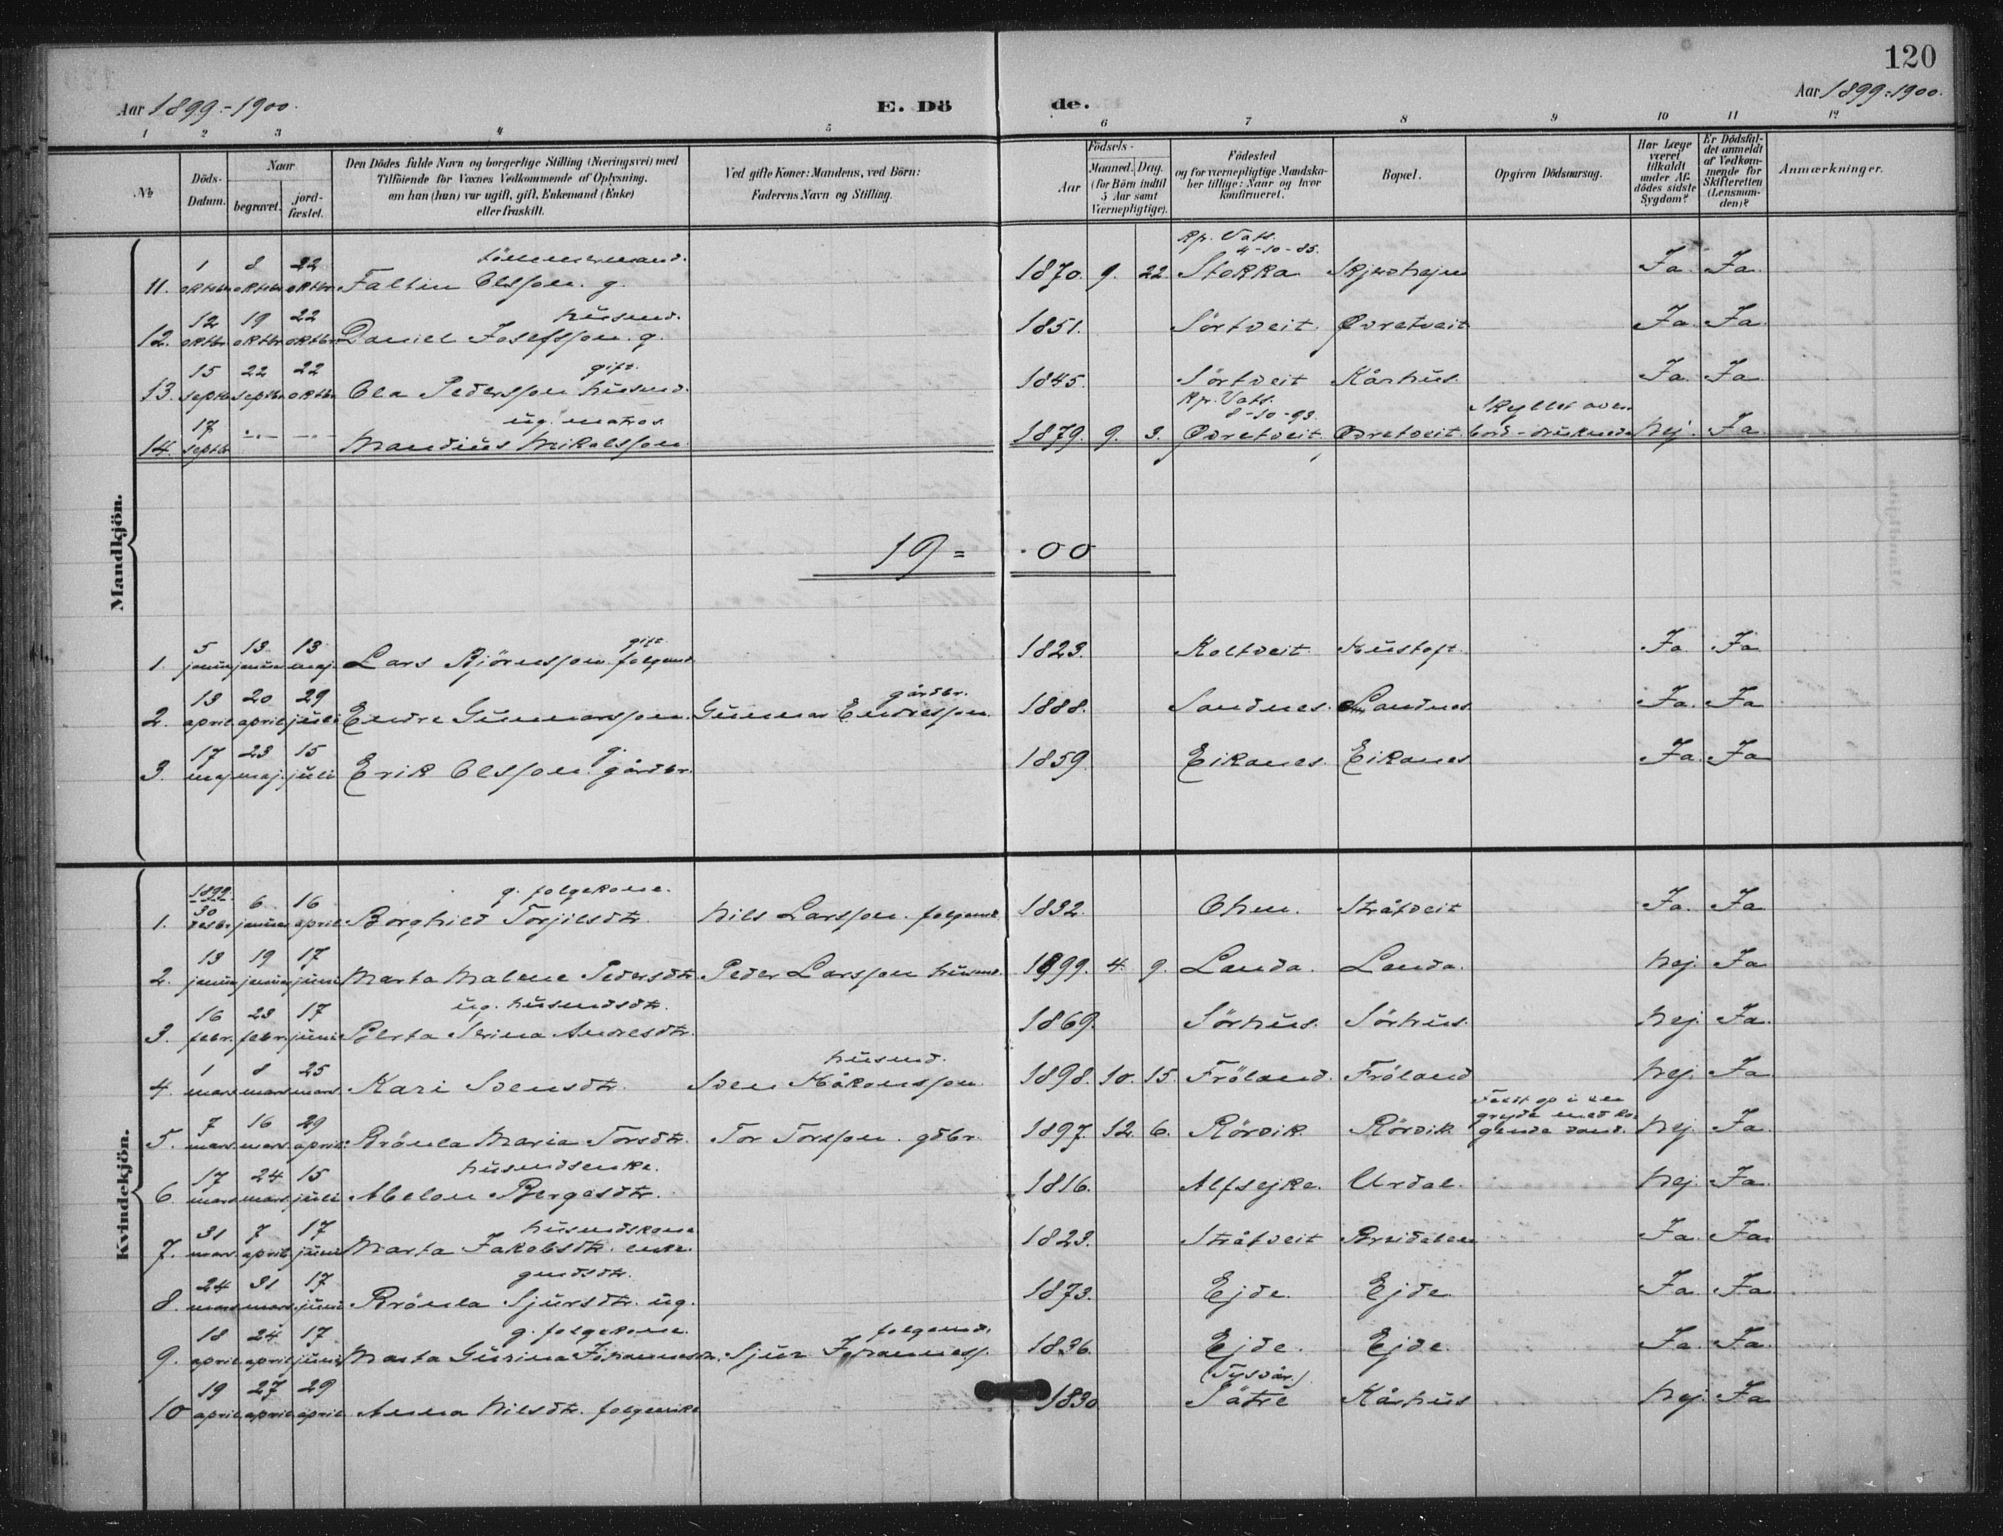 120
Aar 1899-1900.
E. Dö de.
Aar 1899-1900.
1 2 3 4 5 6 7 8 9 10 11 12
No
Döds-Datum.
Naar begravet. jord-fæstet.
Den Dödes fulde Navn og borgerlige Stilling (Næringsvei) med Tilföiende for Voxnes Vedkommende af Oplysning, om han (hun) var ugift, gift, Enkemand (Enke) eller fraskilt.
Ved gifte Koner: Mandens, ved Börn: Faderens Navn og Stilling.
Födsels- Aar Maaned. Dag. (for Börn indtil 5 Aar samt Værnepligtige).
Födested og for værnepligtige Mandskaber tillige: Naar og hvor konfirmeret.
Bopæl.
Opgiven Dödsaarsag.
Har Læge været tilkaldt under Afdödes sidste Sygdom?
Er Dödsfaldet anmeldt af Vedkommende for Skifteretten (Lensmanden)?
Anmærkninger.
Mandkjön.
11. 1 oktbr 8 oktbr 22 oktbr Faltin Olsson. g. tömmermand. 1870. 9. 22. Kp. Vats. 4-10-85. Stokka Ja. Ja.
12. 12 oktbr 19 oktbr 22 oktbr Daniel Josefsson. g. husmd. 1851. Sörtveit. Øvretveit Ja. Ja.
13. 15 septbr 22 septbr 22 oktbr Ola Pedersson husmd. gift. 1845. Sörtveit Kårhus. Ja. Ja.
14. 17 septbr — — Mandius Mikalsson ug. matros. 1879. 9. 3. Kp. Vats. 8-10-93. Øvretveit Øvretveit Skyllet over bord - druknede Nej. Ja.
19=00
1. 5 januar 13 januar 13 maj Lars Björnsson. folgemd gift 1823. Koltveit Ja. Ja
2. 13 april 20 april 29 juli Endre Gunnarsson. Gunnar Endresson. gårdbr. 1888. Sandnes. Sandnes Ja. Ja
3. 17 maj 23 maj 15 juli Erik Olsson. g. gårdbr. 1859. Eikanes. Eikanes Ja. Ja
Kvindekjön.
1. 1899. 30 desbr. 6 januar 16 april Borghild Torjilsdtr. g. folgekone. Nils Larsson. folgemd. 1832. Ohm. Stråtveit Ja. Ja.
2. 13 januar 19 januar 17 juni Marta Malene Pedersdtr. Peder Larsson husmd. 1899. 4. 9. Landa. Landa. Nej. Ja.
3. 16 febr. 23 febr. 17 juni Berta Serina Andresdtr. ug. husmdsdtr. 1869. Sörhus. Sörhus. Nej. Ja.
4. 1 mars 8 mars 25 mars Kari Svensdtr. Sven Håkonsson. husmd. 1898. 10. 15. Fröland. Fröland Nej. Ja.
5. 7 mars 16 mars 29 april Brönla Maria Torsdtr. Tor Torsson. gdbr. 1897. 12. 6. Rörvik Rörvik Faldt op i en gryde med kogende vand. Nej. Ja.
6. 17 mars 24 mars 15 juli Abelon Bergesdtr. husmdsenke. 1816. Alfsejke. Urdal. Nej. Ja.
7. 31 mars 7 april 17 juni Marta Jakobsdtr. enke. husmdskone 1823. Stråtveit Breidalen Ja. Ja.
8. 24 mars 31 mars 17 juni Brönla Sjursdtr. ug. gmdsdtr. 1873. Ejde. Ejde. Ja. Ja
9. 18 april 24 april 17 juni Marta Gurina Johannesdtr. g. folgekone. Sjur Johanness. folgemd. 1836. Ejde. Ejde. Ja. Ja
10 19 april 27 april 29 april Anna Nilsdtr. folgeenke 1830 (Tysvær.) Sätre Kårhus Nej. Ja